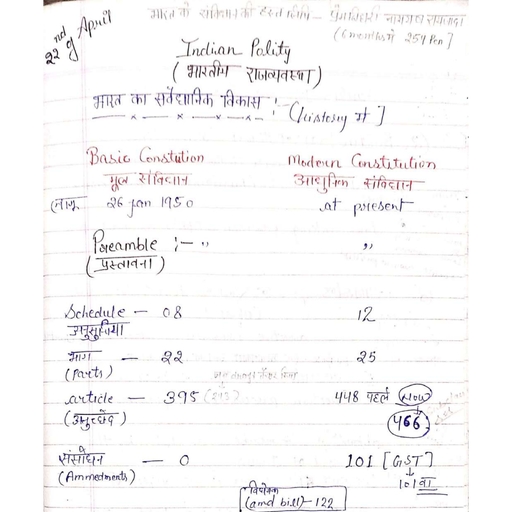 22nd of April
भारत के संविधान की हस्तलिपि - प्रेमबिहारी नारायण रायजादा
(6 months में 254 Pen]
Indian Polity
(भारतीय राजव्यवस्था)
भारत का संवैधानिक विकास :- (history में]
Basic Constution Modern Constitution
मूल संविधान आधुनिक संविधान
लागू 26 Jan 1950 at present
Preamble :- ,, ,,
(प्रस्तावना)
Schedule - 08 12
अनुसूचिया
भाग - 22 25
(Parts)
article - 395 448 पहले (Now)
(अनुच्छेद) 466
संसोधन - 0 101 [GST]
(Ammedments) 101 वा
विधेयक
(amd bill) - 122